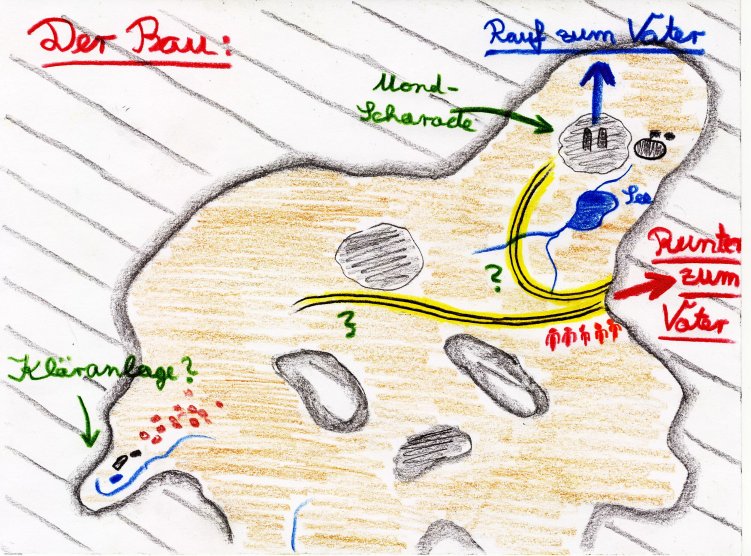 Der Bau:
Rauf zum Vater
Mond-
Scharade
See
Runter
zum
Vater
?
?
Kläranlage?